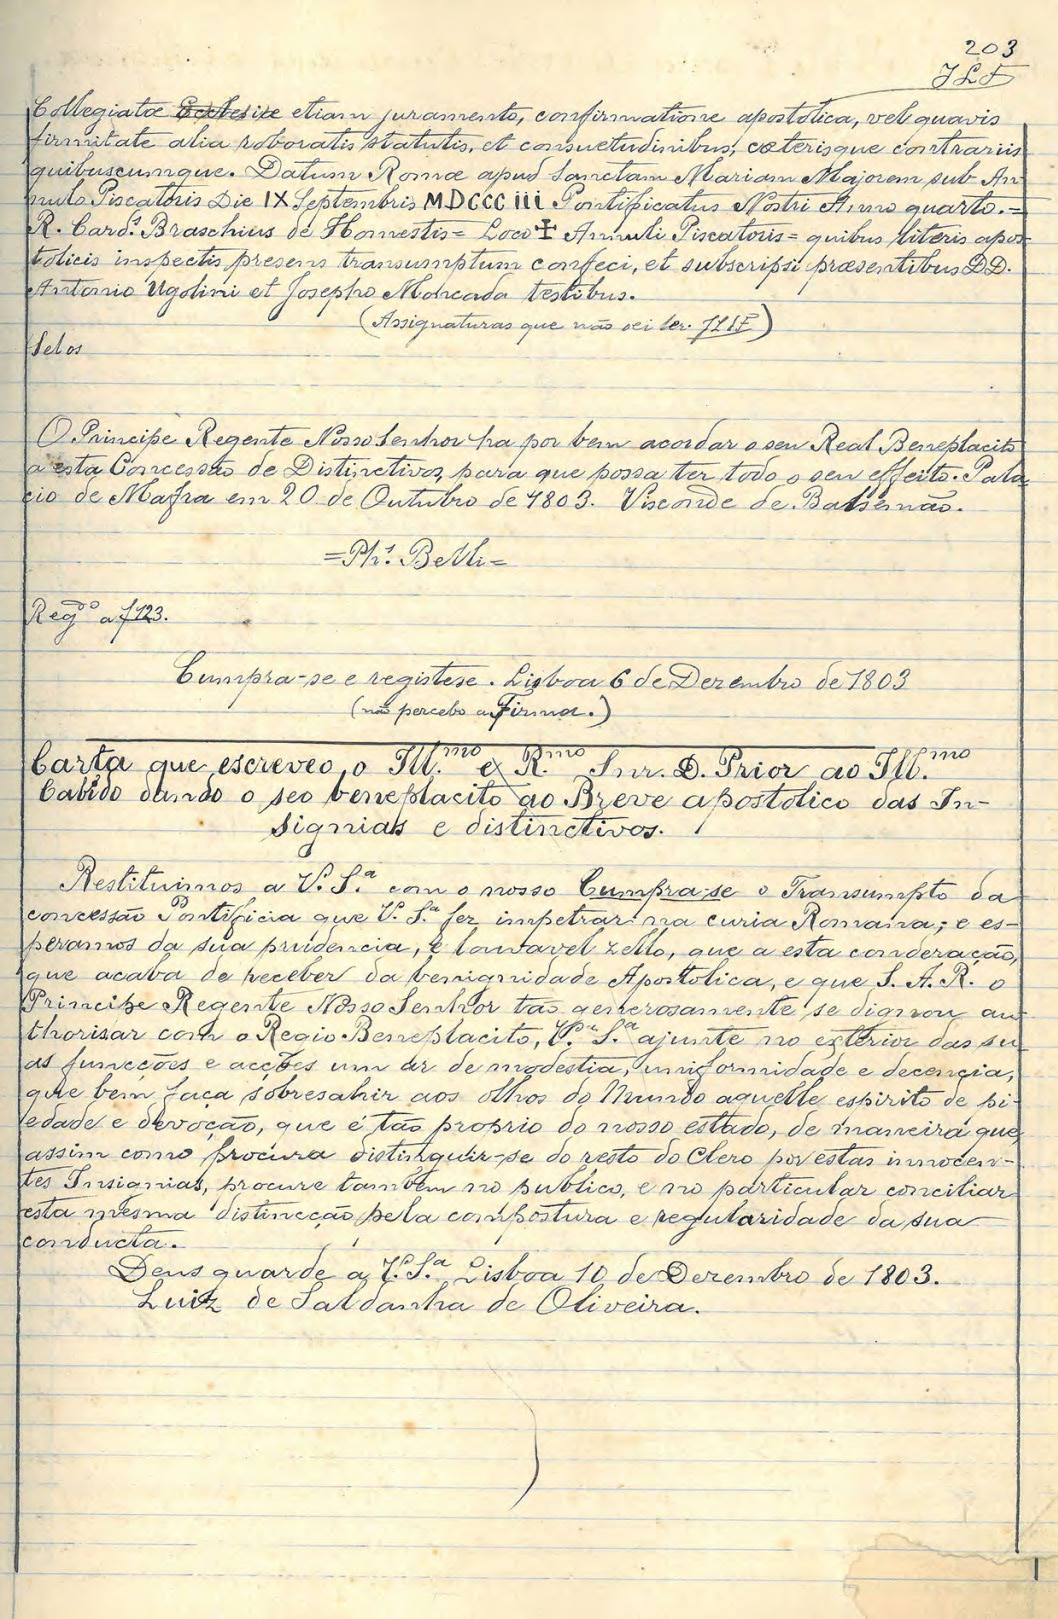 203
JLF
Collegiatæ Ecclesiæ etiam juramento, confirmatione apostolica, vel quavis
firmitate alia roboratis statutis, et consuetudinibus, cæterisque contrariis
quibuscumque. Datum Romæ apud Sanctam Mariam Majorem sub An-
nulo Piscatoris Die IX Septembris MDCCCIII Pontificatus Nostri Anno quarto.=
R. Card.s Braschius de Honestis= Loco ✠ Annuli Piscatoris= quibus literis apos-
tolicis inspectis presens transumptum confeci, et subscripsi præsentibus DD.
Antonio Ugolini et Josepho Moncada testibus.
(Assignaturas que não sei ler. JLF)
Selos
O Principe Regente Nosso Senhor ha por bem acordar o seu Real Beneplacito
a esta Concessão de Distinctivos, para que possa ter todo o seu effeito. Pala-
cio de Mafra em 20 de Outubro de 1803. Visconde de Balsemão.
=Ph.s Belli=
Reg.do a f 123.
Cumpra-se e registese. Lisboa 6 de Dezembro de 1803
(não percebo a Firma.)
Carta que escreveo o Ill.mo e R.mo Snr. D. Prior ao Ill.mo
Cabido dando o seo beneplacito ao Breve apostolico das In-
signias e distinctivos.
Restituimos a V. S.a com o nosso Cumpra-se o Transumpto da
concessão Pontificia que V. S.a fez impetrar na curia Romana; e es-
peramos da sua prudencia, e louvavel zello, que a esta conderação,
que acaba de receber da benignidade Apostolica, e que S. A. R. o
Principe Regente Nosso Senhor tão generosamente se dignou au-
thorisar com o Regio Beneplacito, V. S.a ajunte no exterior das su-
as funcções e acções um ar de modestia, uniformidade e decencia,
que bem faça sobresahir aos olhos do Mundo aquelle espirito de pi-
edade e devoção, que é tão proprio do nosso estado, de maneira que
assim como procura distinguir-se do resto do Clero por estas innocen-
tes Insignias, procure tambem no publico, e no particular conciliar
esta mesma distincção pela compostura e regularidade da sua
conducta.
Deus guarde a V. S.a Lisboa 10 de Dezembro de 1803.
Luiz de Saldanha de Oliveira.